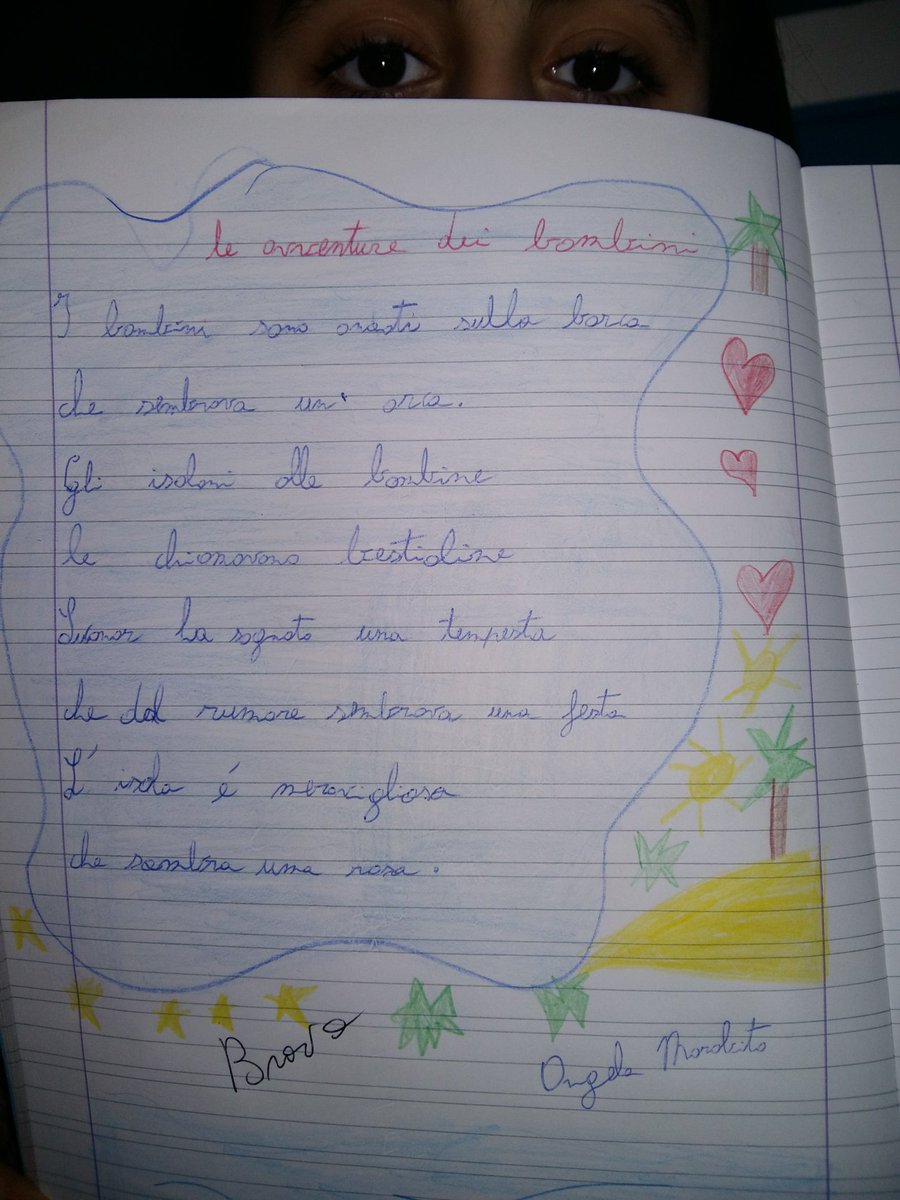 le avventure dei bambini
I bambini sono andati sulla barca
che sembrava un' orca.
Gli isolani alle bambine
le chiamavano bestioline
ha sognato una tempesta
che dal rumore sembrava una festa
L' isola é meravigliosa
che sembra una rosa.
Brava
Angela